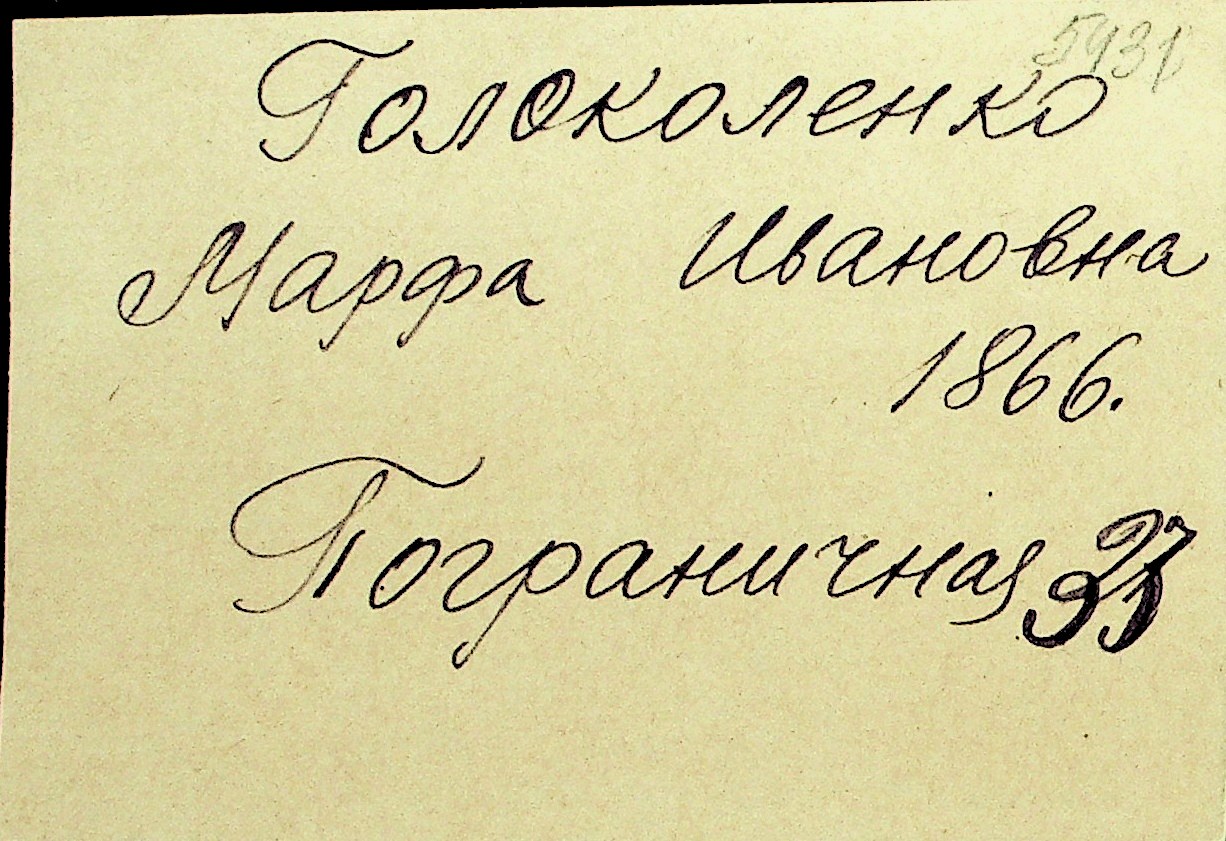 Голоколенко
Марфа Ивановна
1866.
Пограничная